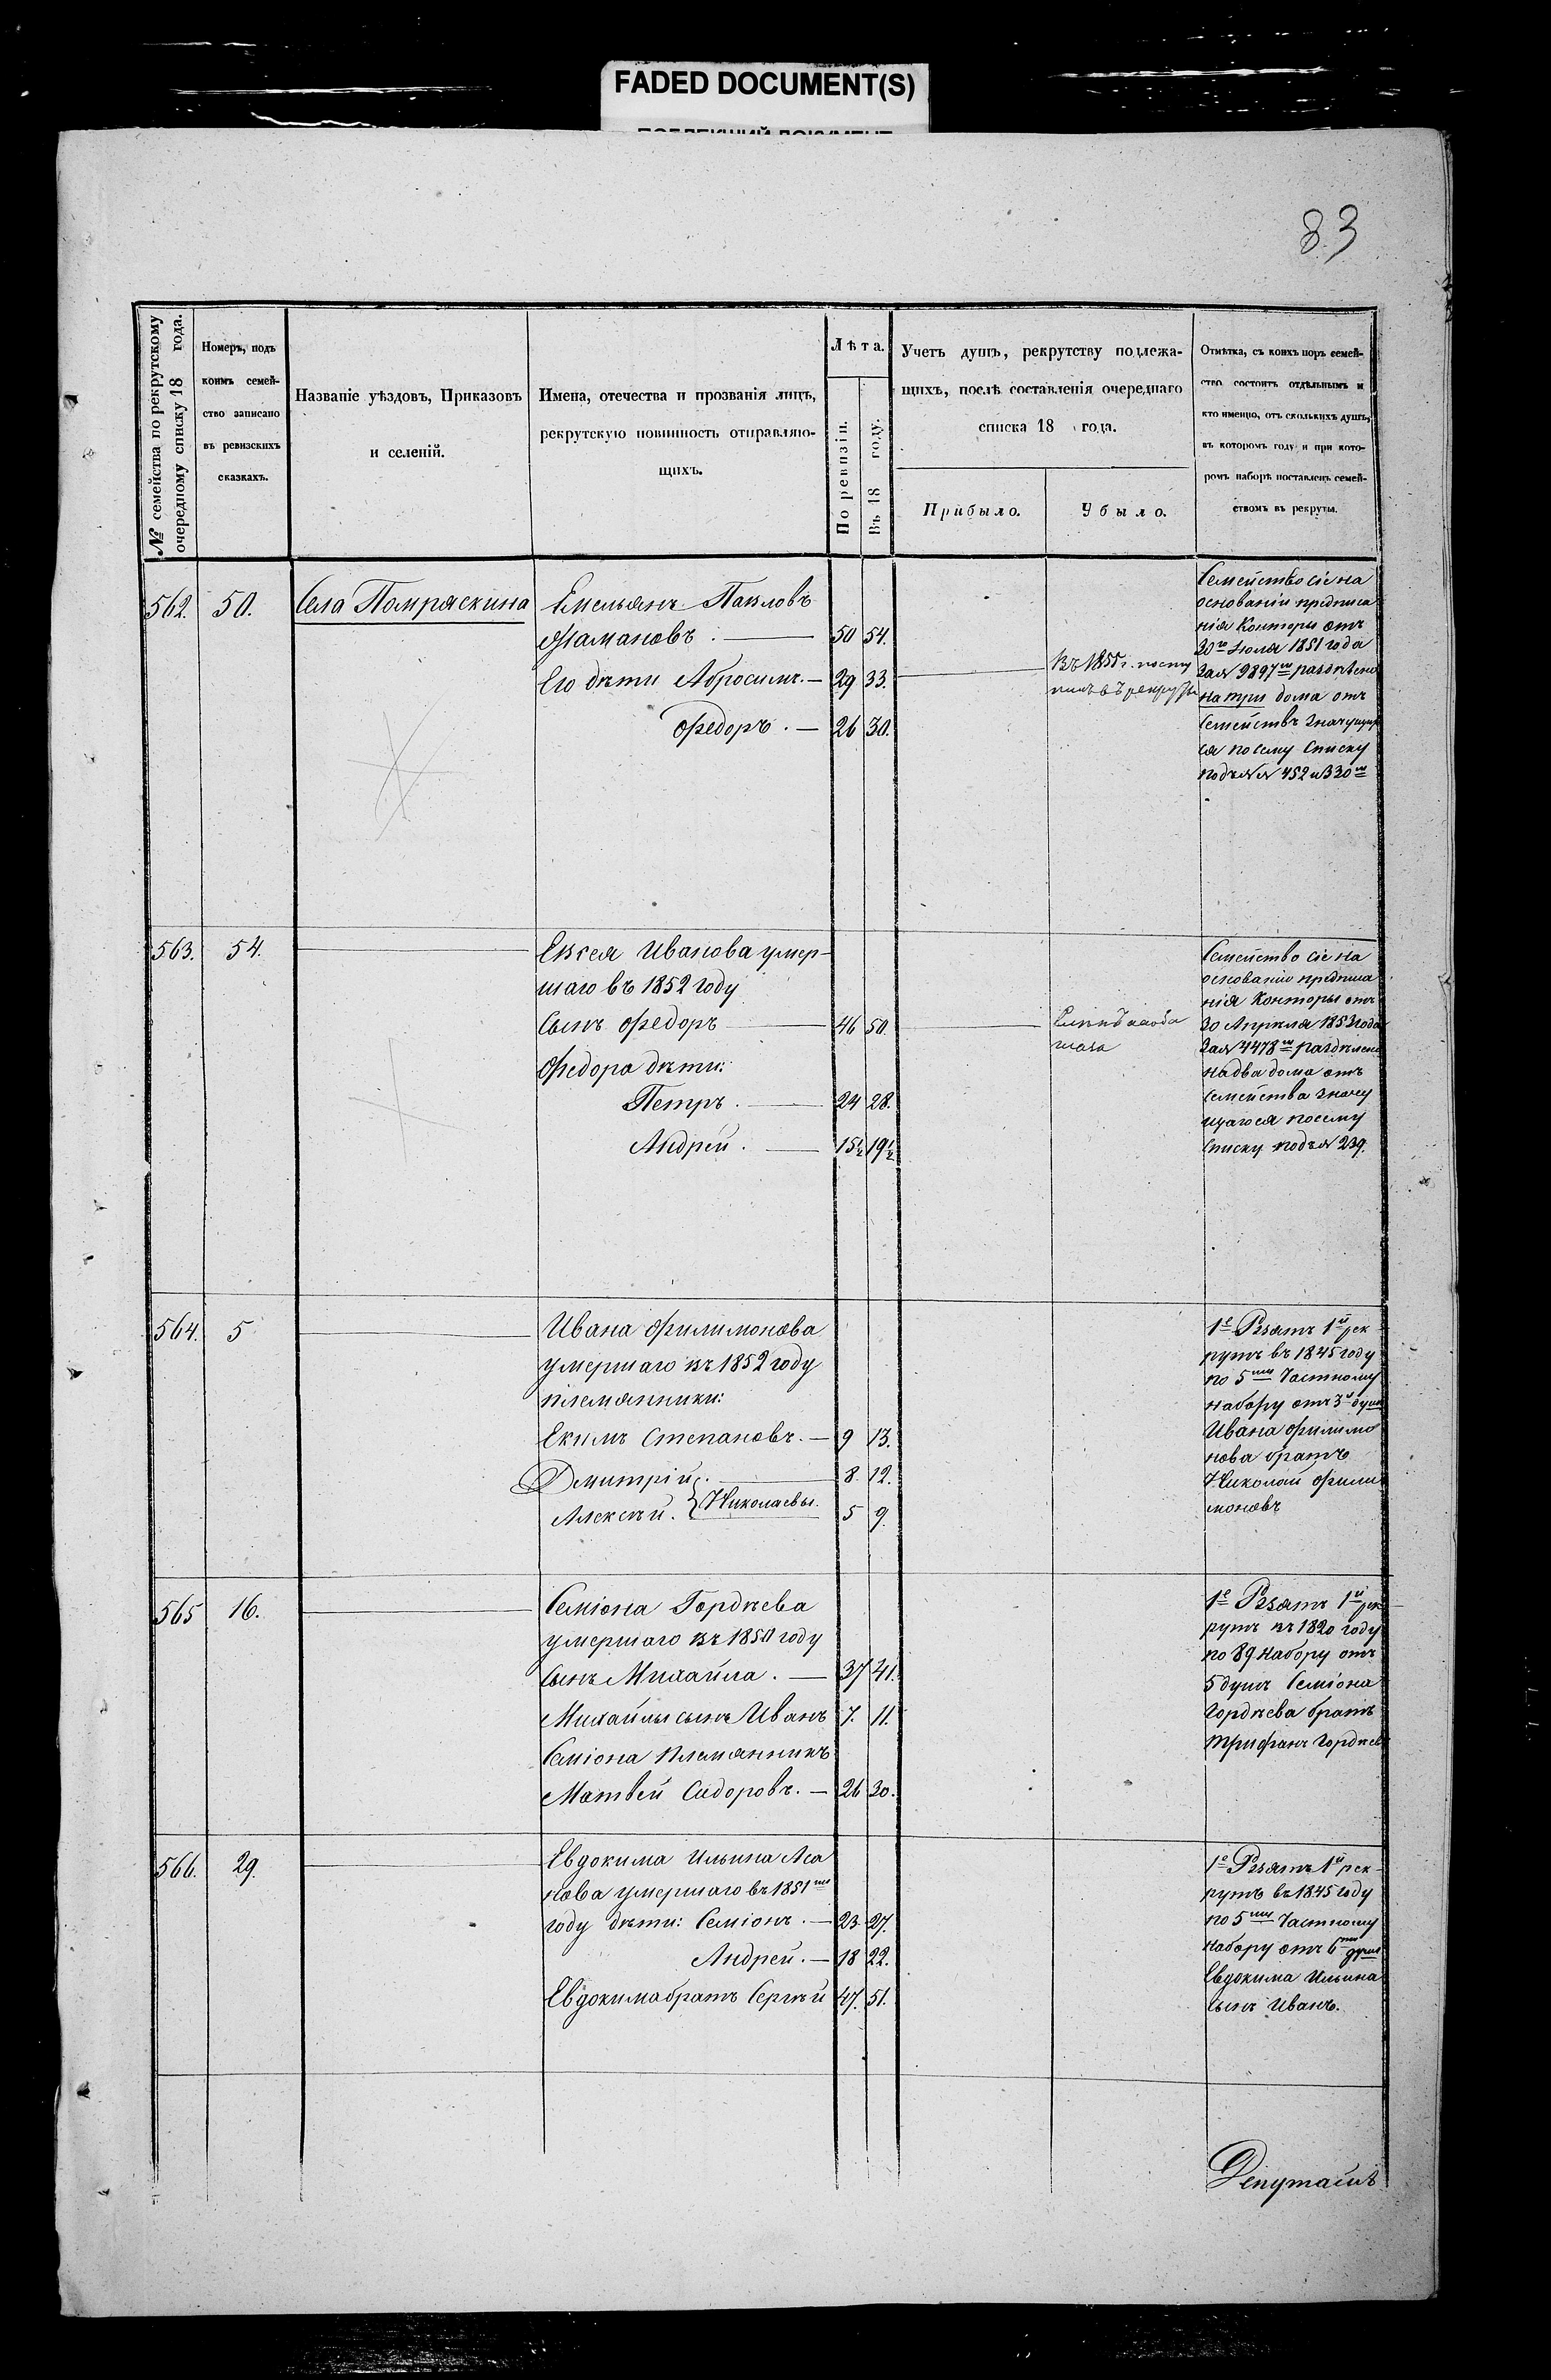 FADED DOCUMENT(S)
83
№ семейства по рекрутскому
очередному списку 18 года.
Номеръ, подъ
коимъ семей-
ство записано
въ ревизскихъ
сказкахъ.
Названіе уѣздовъ, Приказовъ
и селеній.
Имена, отечества и прозванія лицъ,
рекрутскую повинность отправляю-
щихъ.
Лѣта.
По ревизіи.
Въ 18 году.
Учетъ душъ, рекрутству подлежа-
щихъ, послѣ составленія очереднаго
списка 18 года.
Прибыло.
Убыло.
Отмѣтка, съ коихъ поръ семей-
ство состоитъ отдѣльнымъ и
кто именно, отъ сколькихъ душъ,
въ которомъ году и при кото-
ромъ наборѣ поставленъ семей-
ствомъ въ рекруты.
562. 50. Села Помряскина
Емельянъ Павловъ
50 54.
Его дѣти Абросимъ. 29 33.
Федоръ. 26 30.
Въ 1855 г. посту
пилъ въ рекруты
Семейство сіе на
основаніи предписа
нія Конторы отъ
30го Іюля 1851 года
за № 9897м раздѣлено
на три дома отъ
Семействъ значущих
ся по сему Списку
подъ №№ 452 и 330м
563. 54.
Евсея Иванова умер-
шаго въ 1852 году
Сынъ Федоръ 46 50.
Федора дѣти:
Петръ. 24 28.
Андрей. 15½ 19½
Семейство сіе на
основаніи предписа
нія Конторы отъ
30 Апреля 1853 года
за № 4478м раздѣлено
на два дома отъ
Семейства значу
щагося по сему
Списку подъ № 239.
564. 5
Ивана Филимонова
умершаго въ 1852 году
племянники:
Екимъ Степановъ. 9 13.
Дмитрій. 8. 12.
Алексѣй. } Николаевы. 5 9.
1е Взятъ 1й рек
рутъ въ 1845 году
по 5му Частному
набору отъ 3х душъ
Ивана Филимо
нова братъ
Николай Фили
моновъ
565 16.
Семіона Гордѣева
умершаго въ 1850 году
сынъ Михайла. 37 41.
Михайлы сынъ Иванъ 7. 11.
Семіона племянникъ
Матвей Сидоровъ. 26 30.
1е Взятъ 1й рек
рутъ въ 1820 году
по 89 набору отъ
5 душъ Семіона
Гордѣева братъ
Трифанъ Гордѣев
566. 29.
Евдокима Ильина Аса
нова умершаго въ 1851м
году дѣти: Семіонъ. 23 27.
Андрей. 18 22.
Евдокима братъ Сергѣй 47. 51.
1е Взятъ 1й рек-
рутъ въ 1845 году
по 5му Частному
набору отъ 6ти душъ
Евдокима Ильина
сынъ Иванъ.